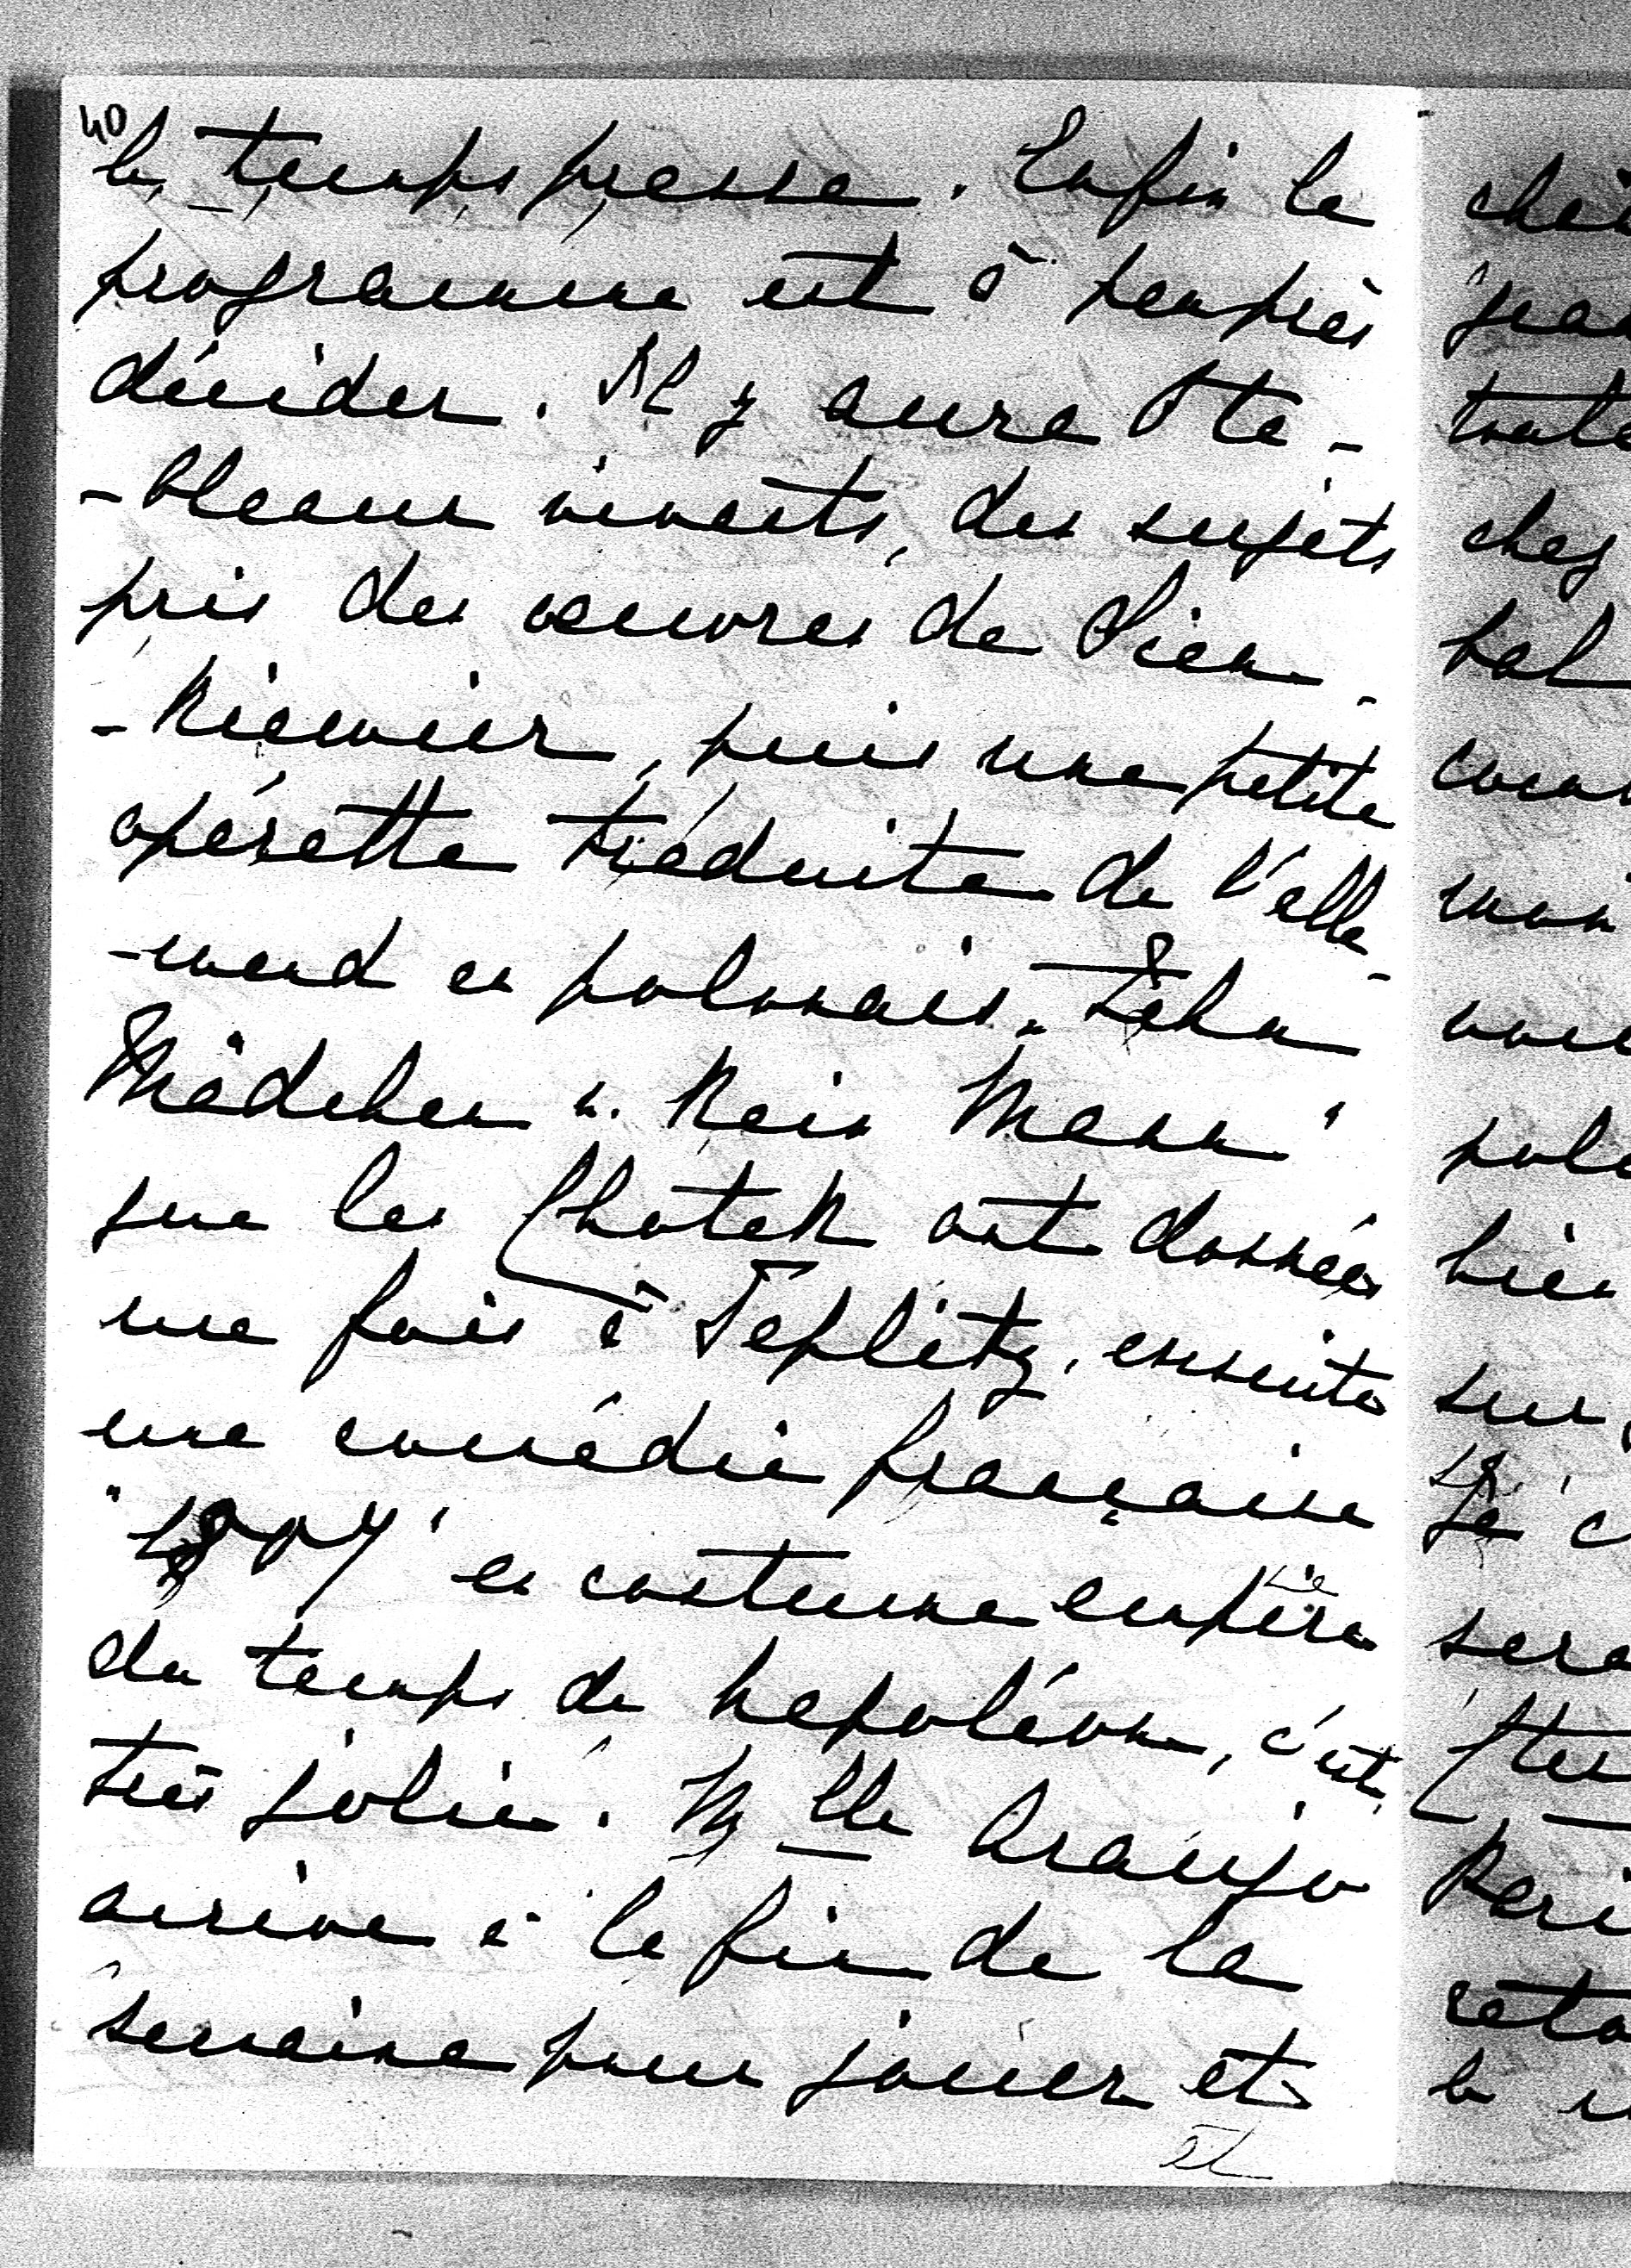 40
le temps presse. Enfin le
programme est à peuprès
décider. Il y aura 8 ta-
-bleaux vivants, des sujets
pris des oeuvres de Sien-
-kiewicz, puis une petite
opérette traduite de l'alle-
-mand en polonais "Zehn
Mädchen u. Kein Mann"
que les Chotek ont donnée
une fois à Teplitz, ensuite
une comédie française
en costume empire
du temps de Napoléon, c'est
très jolie. Mlle Araujo
arrive à la fin de la
semaine pour jouer et
et